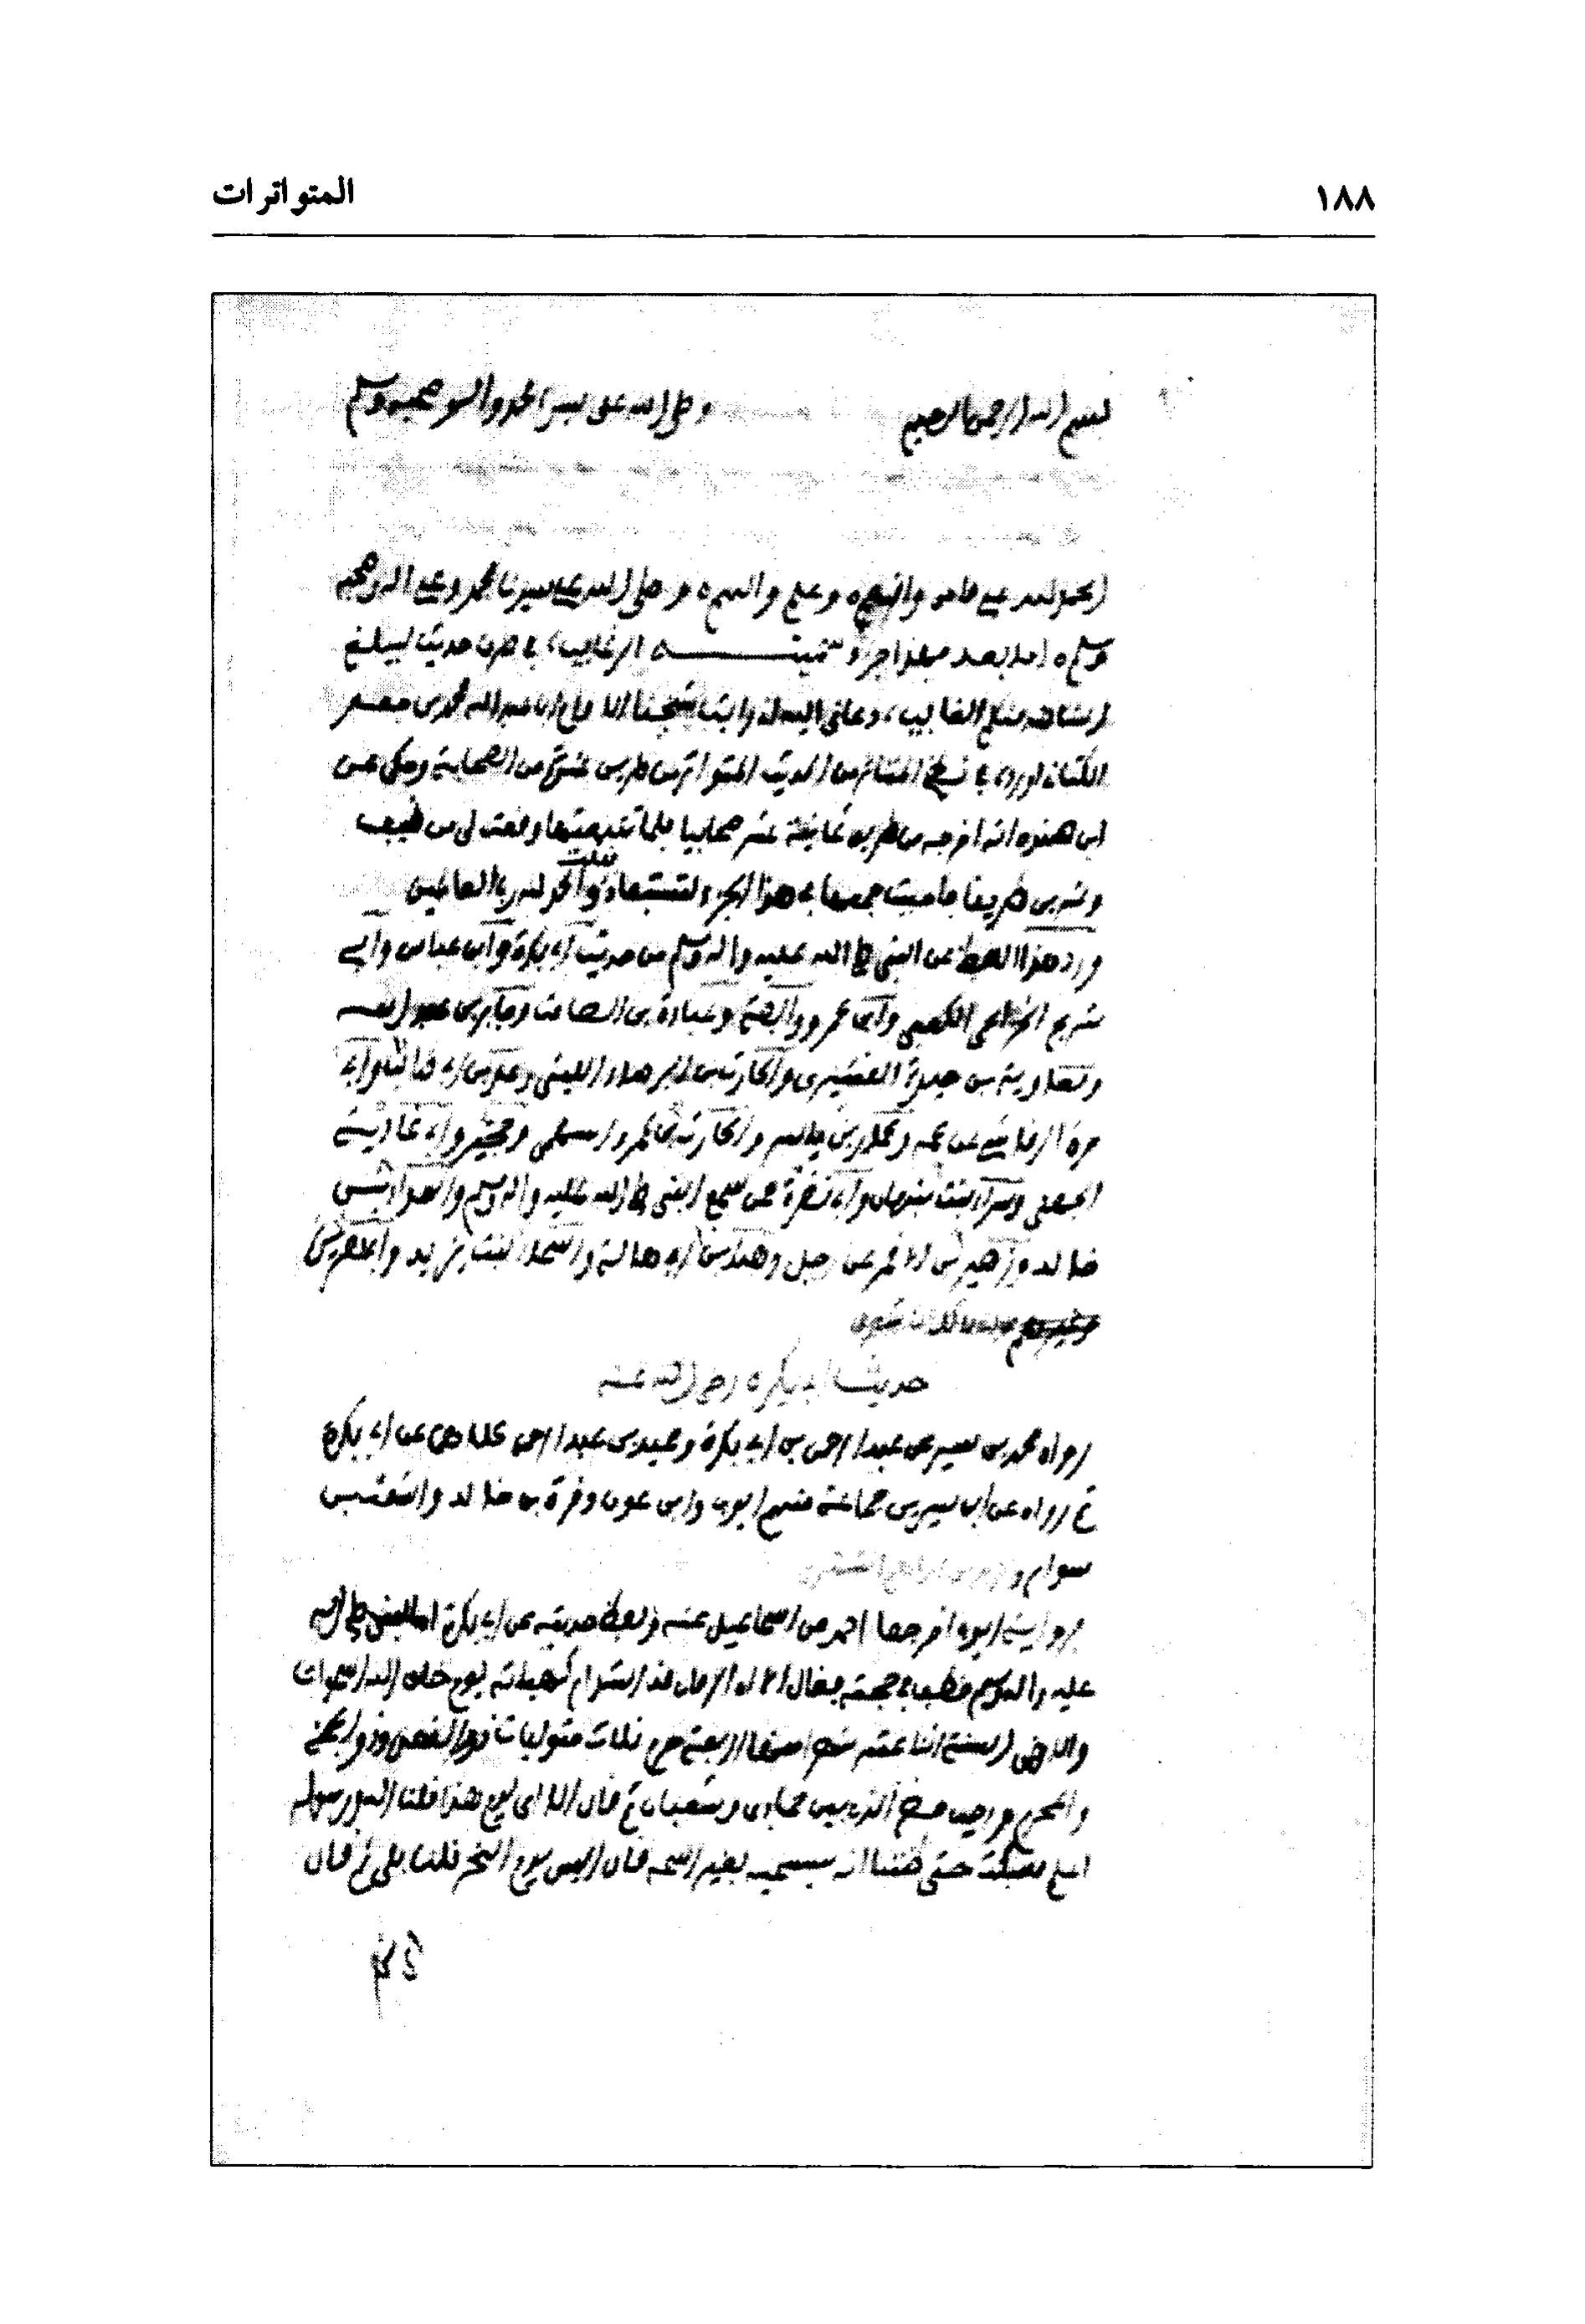 ١٨٨
المتواترات
بسم الله الرحمن الرحيم وصلى الله على سيدنا محمد وآله وصحبه وسلم
الحمد لله على ما وأنعم وعلم وألهم وصلى الله على سيدنا محمد وعلى آله وصحبه
وسلم أما بعد فهذا جزء سميته الرغائب في طرق حديث ليبلغ
الشاهد منكم الغائب، دعاني إليه أني رأيت شيخنا الإمام أبا عبد الله محمد بن جعفر
الكتاني أورده في نظم المتناثر من الحديث المتواتر من طريق عشرة من الصحابة وحكى عن
ابن منده أنه أخرجه من طريق ثمانية عشر صحابيا فلما تتبعتها وقعت لي من نيف
وعشرين طريقا فأحببت جمعها في هذا الجزء لتستفاد فقلت والحمد لله رب العالمين
ورد هذا اللفظ عن النبي صلى الله عليه وآله وسلم من حديث أبي بكرة وابن عباس وأبي
شريح الخزاعي الكعبي وابن عمر ووابصة وعبادة بن الصامت وجابر بن عبد الله
ومعاوية بن حيدة القشيري والحارث بن البرصاء الليثي و
حرة الرقاشي عن عمه وعمار بن ياسر والحارث بن عمرو السهمي وحجير وأبي غادية
الجهني وسراء بنت نبهان وأبي نضرة عمن سمع النبي صلى الله عليه وآله وسلم والعداء بن
خالد و عن رجل وهند بن أبي هالة وأسماء بنت يزيد
حديث أبي بكرة رضي الله عنه
رواه محمد بن سيرين عن عبد الرحمن بن أبي بكرة وحميد بن عبد الرحمن كلاهما عن أبي بكرة
ثم رواه عن ابن سيرين جماعة منهم أيوب وابن عون وقرة بن خالد وأشعث بن
سوار و
فرواية أيوب أخرجها أحمد عن إسماعيل عنه ولفظ حديثه عن أبي بكرة أن النبي صلى الله
عليه وآله وسلم خطب في حجته فقال ألا إن الزمان قد استدار كهيئته يوم خلق الله السموات
والأرض السنة اثنا عشر شهرا منها أربعة حرم ثلاث متواليات ذو القعدة وذو الحجة
والمحرم ورجب مضر الذي بين جمادى وشعبان ثم قال ألا أي يوم هذا قلنا الله ورسوله
أعلم فسكت حتى ظننا أنه سيسميه بغير اسمه قال أليس يوم النحر قلنا بلى ثم قال